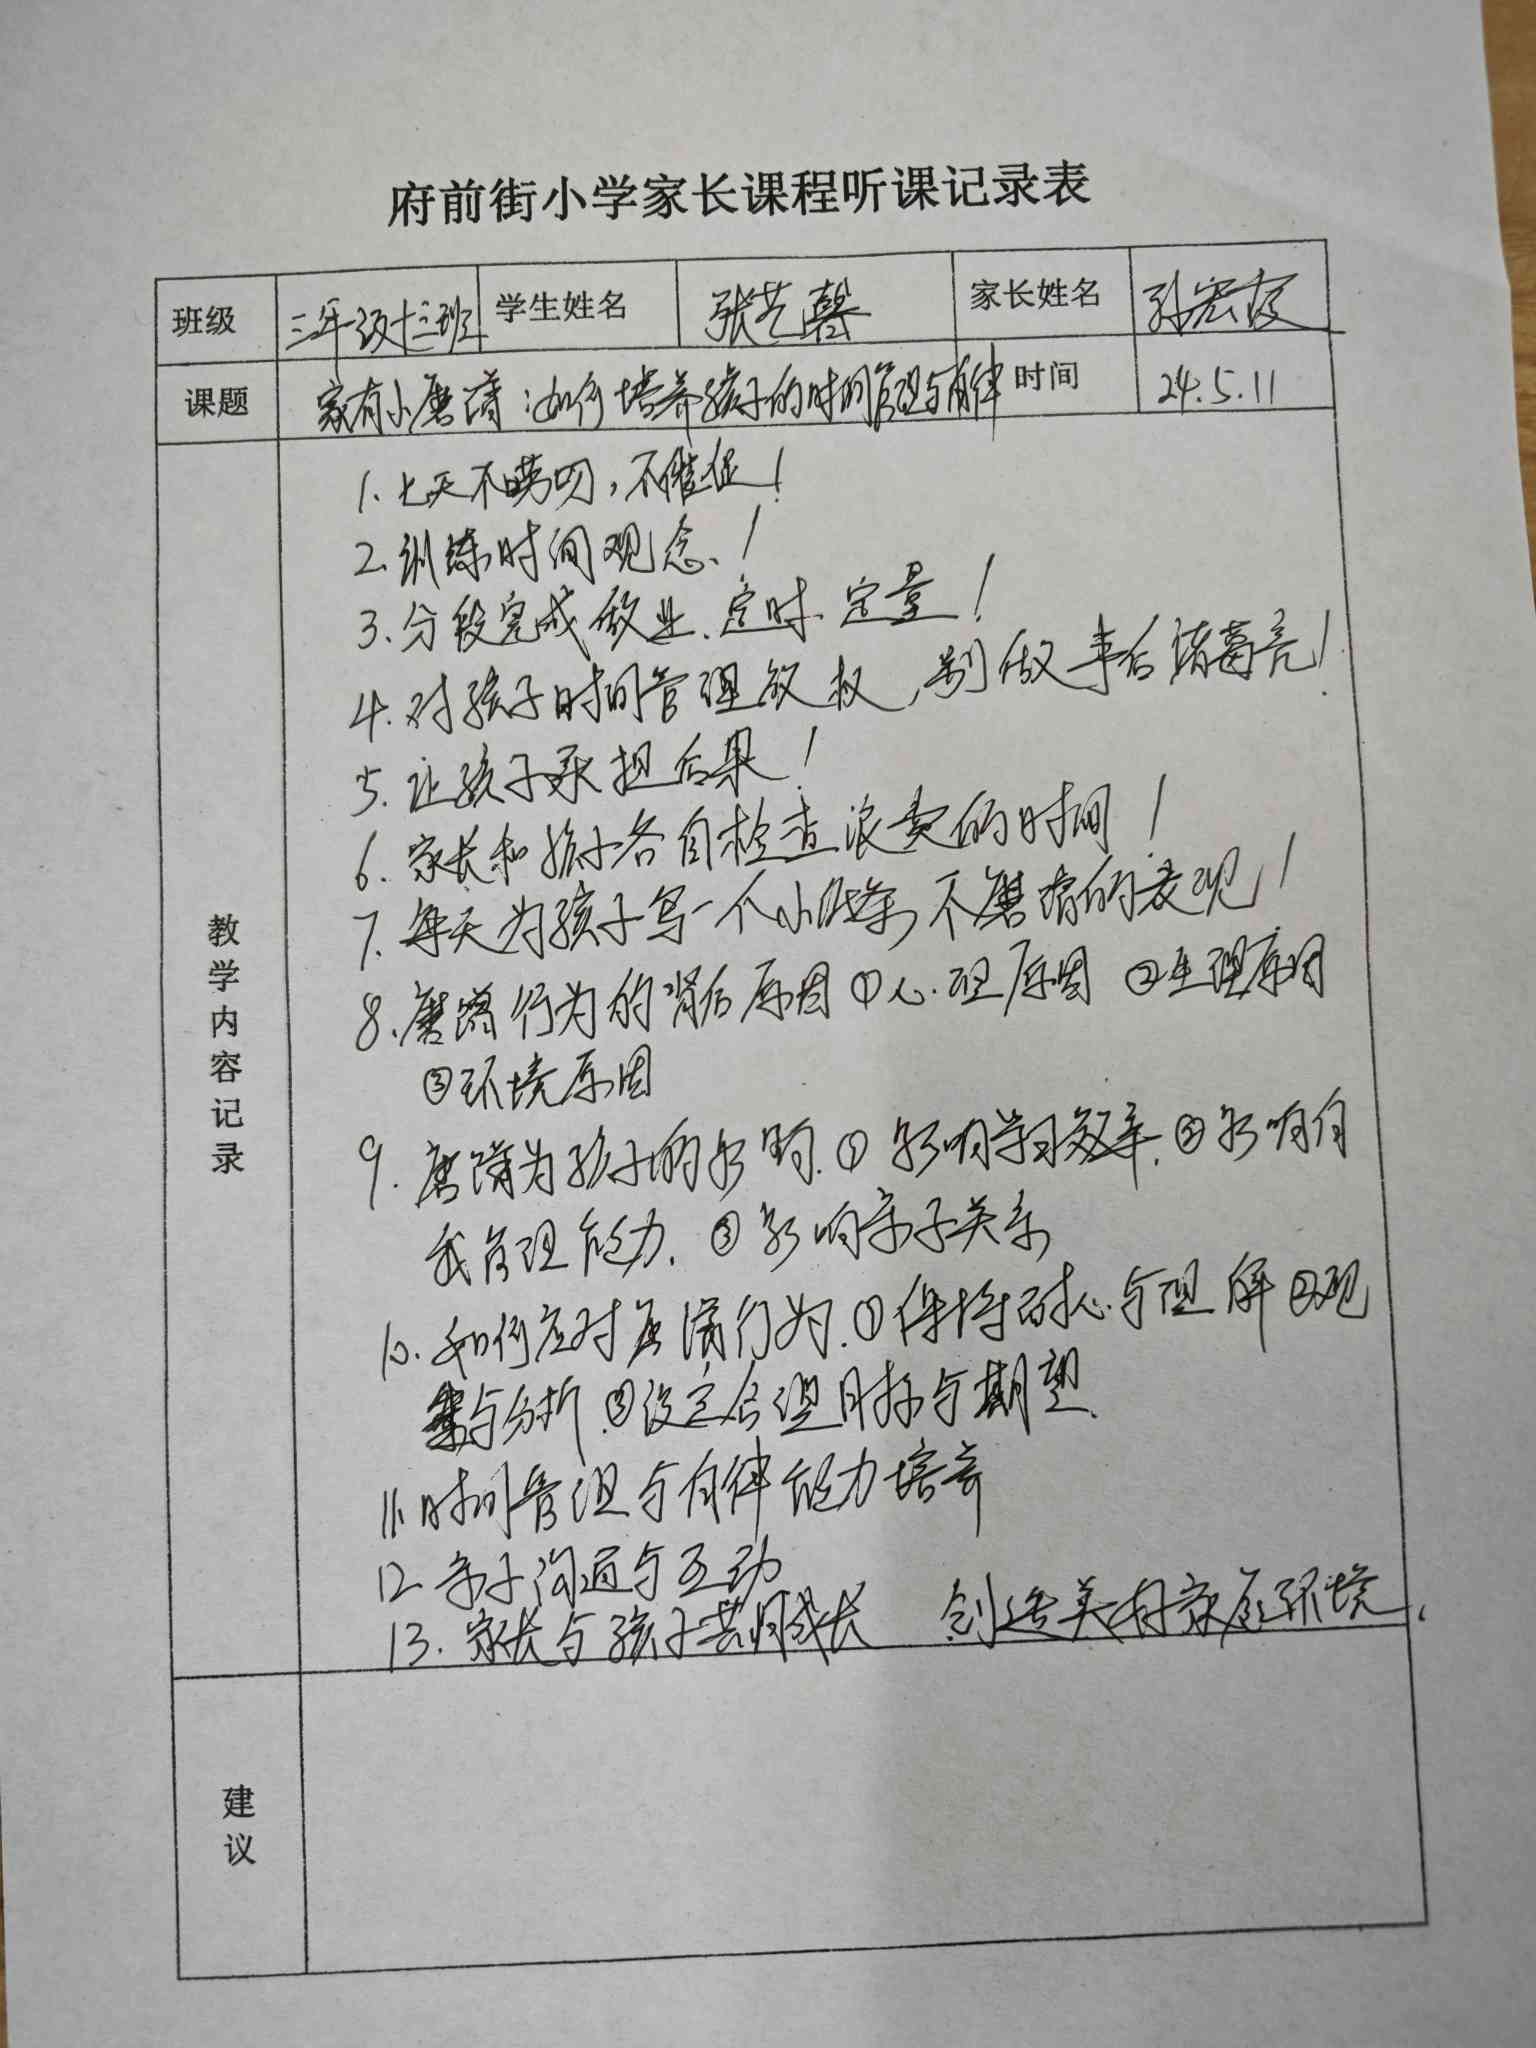 府前街小学家长课程听课记录表
班级 三年级十三班 学生姓名 张艺馨 家长姓名 孙
课题 家有小磨蹭：如何培养孩子的时间管理与自律 时间 24.5.11
教学内容记录
1. 七天不唠叨，不催促！
2. 训练时间观念！
3. 分段完成作业、定时、定量！
4. 对孩子时间管理放权，别做事后诸葛亮！
5. 让孩子承担后果！
6. 家长和孩子各自检查浪费的时间！
7. 每天为孩子写一个小纸条，不磨蹭的表现！
8. 磨蹭行为的背后原因①心理原因 ②生理原因
③环境原因
9. 磨蹭为孩子的影响.①影响学习效率.②影响自
我管理能力.③影响亲子关系
10. 如何应对磨蹭行为.①保持耐心与理解②观
察与分析.③设定合理目标与期望.
11. 时间管理与自律能力培养
12. 亲子沟通与互动
13. 家长与孩子共同成长 创造美好家庭环境.
建议